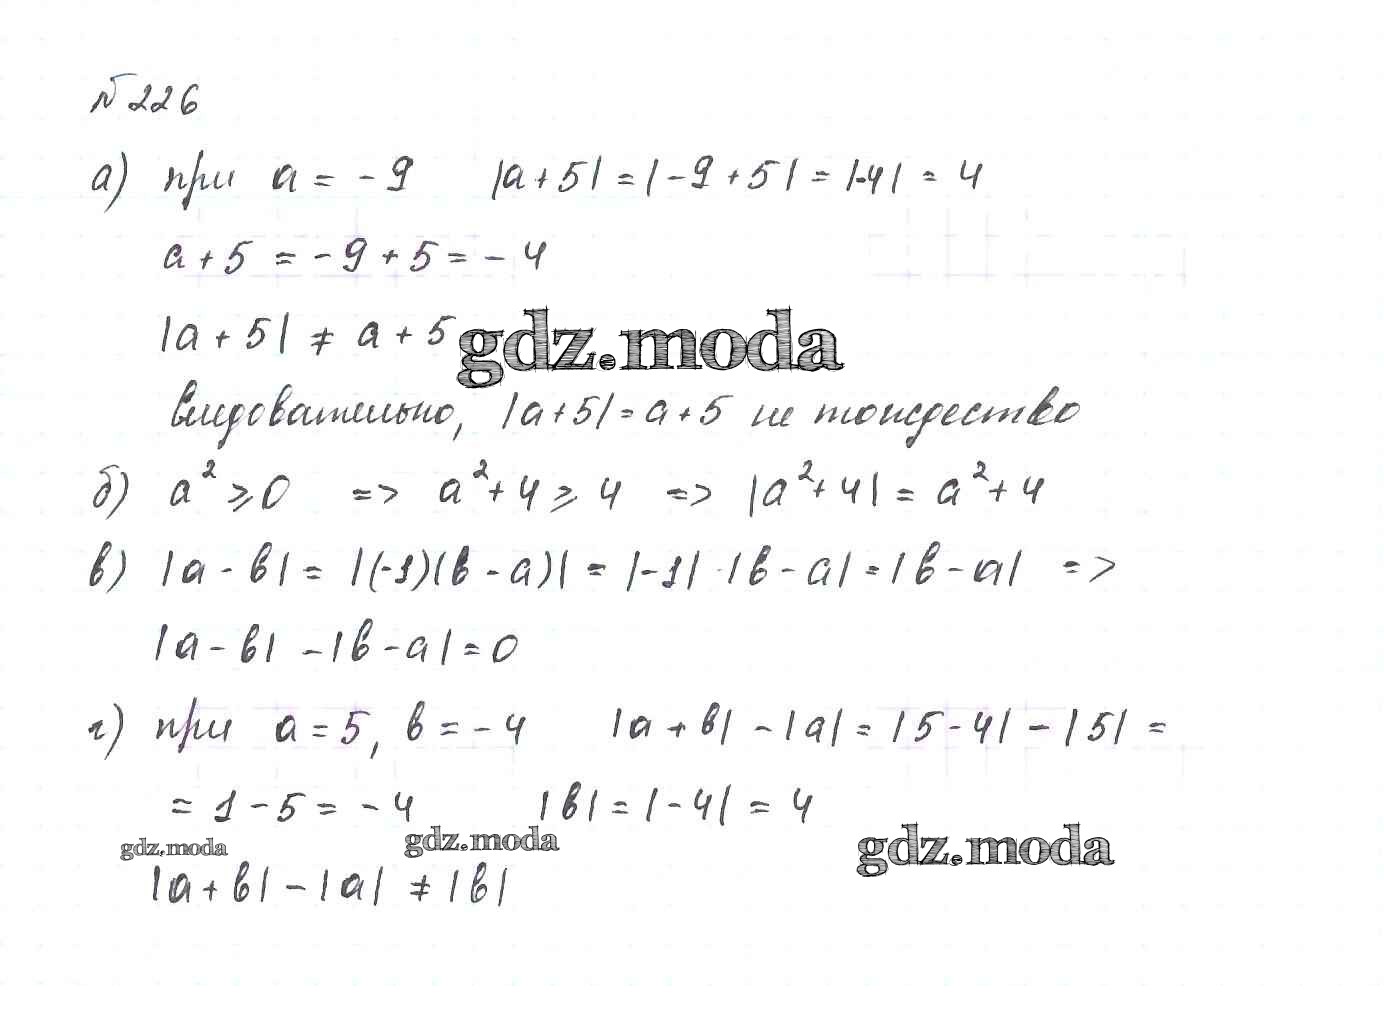 №226
а) при a = -9 |a+5| = |-9+5| = |-4| = 4
a+5 = -9+5 = -4
|a+5| ≠ a+5
gdz.moda
следовательно, |a+5| = a+5 не тождество
б) a² ≥ 0 => a²+4 ≥ 4 => |a²+4| = a²+4
в) |a-b| = |(-1)(b-a)| = |-1|·|b-a| = |b-a| =>
|a-b| -|b-a| = 0
г) при a = 5, b = -4 |a+b| - |a| = |5-4| - |5| =
= 1 - 5 = -4 |b| = |-4| = 4
gdz.moda gdz.moda gdz.moda
|a+b| - |a| ≠ |b|